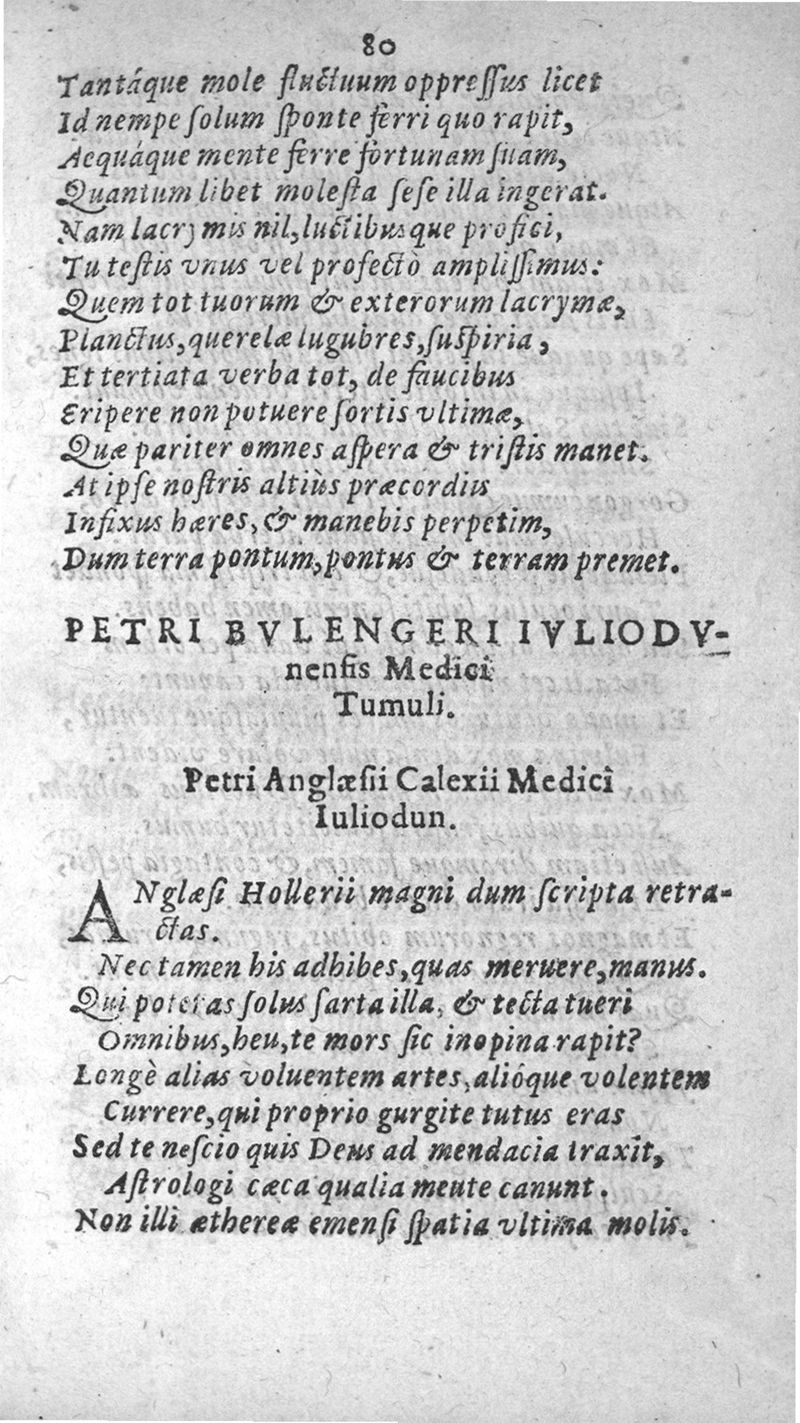 80
Tantáque mole fluctuum oppreſſus licet
Id nempe ſolum ſponte ferri quo rapit,
Aequáque mente ferre fortunam ſuam,
Quantum libet moleſta ſeſe illa ingerat.
Nam lacrymis nil, luctibusque profici,
Tu teſtis vnus vel profectò ampliſſimus:
Quem tot tuorum & exterorum lacrymæ,
Planctus, querelæ lugubres, ſuſpiria,
Et tertiata verba tot, de faucibus
Eripere non potuere ſortis vltimæ,
Quæ pariter omnes aſpera & triſtis manet.
At ipſe noſtris altiùs præcordiis
Infixus hæres, & manebis perpetim,
Dum terra pontum, pontus & terram premet.
PETRI BVLENGERI IVLIODV-
nenſis Medici
Tumuli.
Petri Anglæſii Calexii Medici
Iuliodun.
ANglæſi Hollerii magni dum ſcripta retra-
ctas.
Nec tamen his adhibes, quas meruere, manus.
Qui poteras ſolus ſarta illa, & tecta tueri
Omnibus, heu, te mors ſic inopina rapit?
Longè alias voluentem artes, alióque volentem
Currere, qui proprio gurgite tutus eras
Sed te neſcio quis Deus ad mendacia traxit,
Aſtrologi cæca qualia mente canunt.
Non illi æthereæ emenſi ſpatia vltima molis.